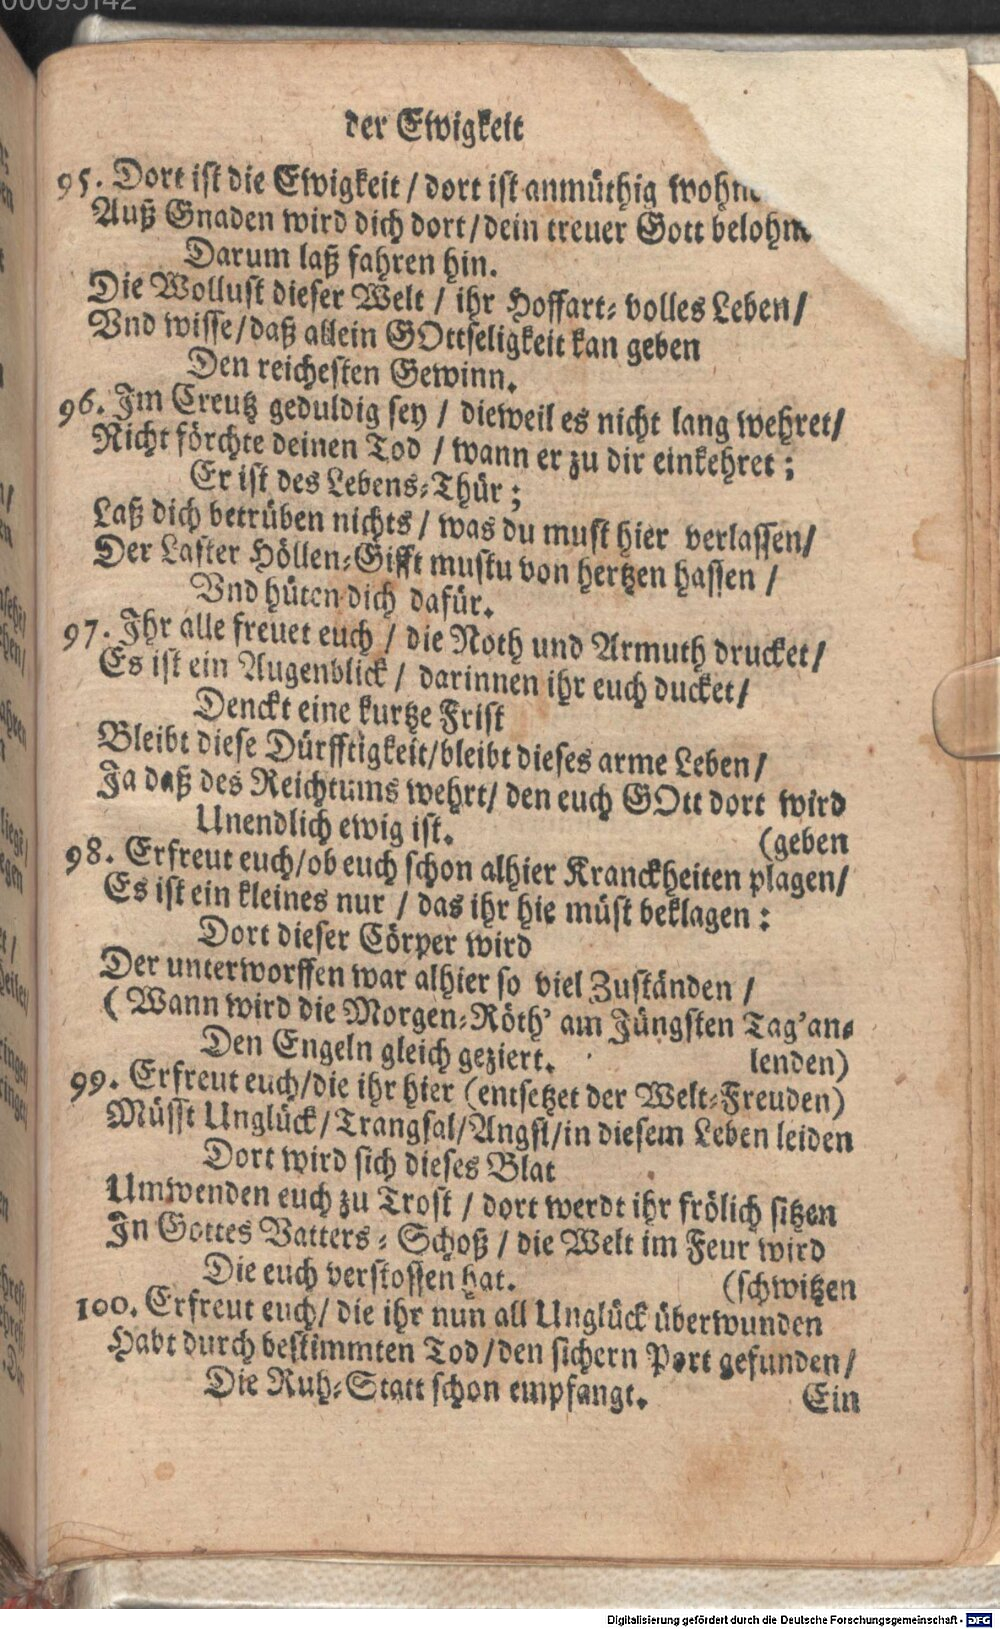 der Ewigkeit
95. Dort ist die Ewigkeit / dort ist anmüthig
Auß Gnaden wird dich dort / dein treuer Gott
Darum laß fahren hin.
Die Wollust dieser Welt / ihr Hoffart= volles Leben /
Vnd wisse / daß allein GOttseligkeit kan geben
Den reichesten Gewinn.
96. Im Creutz geduldig sey / dieweil es nicht lang wehret /
Nicht förchte deinen Tod / wann er zu dir einkehret ;
Er ist des Lebens=Thür ;
Laß dich betrüben nichts / was du must hier verlassen /
Der Laster Höllen=Gifft mustu von hertzen hassen /
Vnd hüten dich dafür.
97. Ihr alle freuet euch / die Noth und Armuth drucket /
Es ist ein Augenblick / darinnen ihr euch ducket /
Denckt eine kurtze Frist
Bleibt diese Dürfftigkeit / bleibt dieses arme Leben /
Ja daß des Reichtums wehrt / den euch GOtt dort wird
Unendlich ewig ist. (geben
98. Erfreut euch / ob euch schon alhier Kranckheiten plagen /
Es ist ein kleines nur / das ihr hie müst beklagen :
Dort dieser Cörper wird
Der unterworffen war alhier so viel Zuständen /
( Wann wird die Morgen=Röth' am Jüngsten Tag' an=
Den Engeln gleich geziert. lenden)
99. Erfreut euch / die ihr hier (entsetzet der Welt=Freuden)
Müsst Unglück / Trangsal / Angst / in diesem Leben leiden
Dort wird sich dieses Blat
Umwenden euch zu Trost / dort werdt ihr frölich sitzen
In Gottes Vatters = Schoß / die Welt im Feur wird
Die euch verstossen hat. (schwitzen
100. Erfreut euch / die ihr nun all Unglück überwunden
Habt durch bestimmten Tod / den sichern Port gefunden /
Die Ruh=Statt schon empfangt. Ein
Digitalisierung gefördert durch die Deutsche Forschungsgemeinschaft - DFG